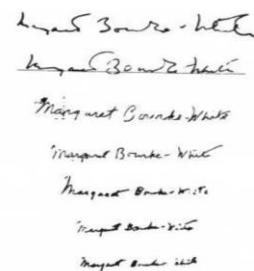 Margaret Bourke-White
Margaret Bourke-White
Margaret Bourke-White
Margaret Bourke-White
Margaret Bourke-White
Margaret Bourke-White
Margaret Bourke-White